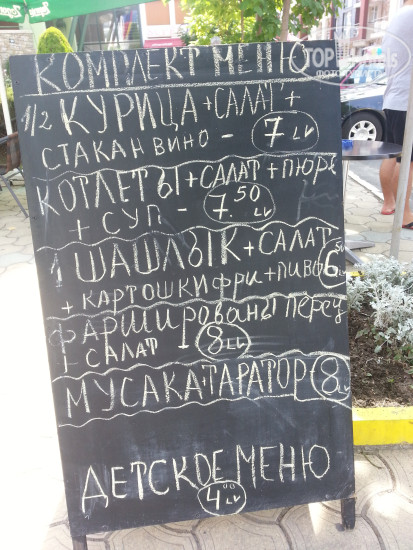 КОМПЛЕКТ МЕНЮ
1/2 КУРИЦА+САЛАТ+
СТАКАН ВИНО - 7 LV
КОТЛЕТЫ+САЛАТ+ПЮРЕ
+ СУП - 7.50 LV
1 ШАШЛЫК+САЛАТ
+ КАРТОШКИ ФРИ+ПИВО 6.50
ФАРШИРОВАНЫ ПЕРЕЦ
1 САЛАТ - 8 LV
МУСАКА+ТАРАТОР 8 LV
ДЕТСКОЕ МЕНЮ
4.00 LV